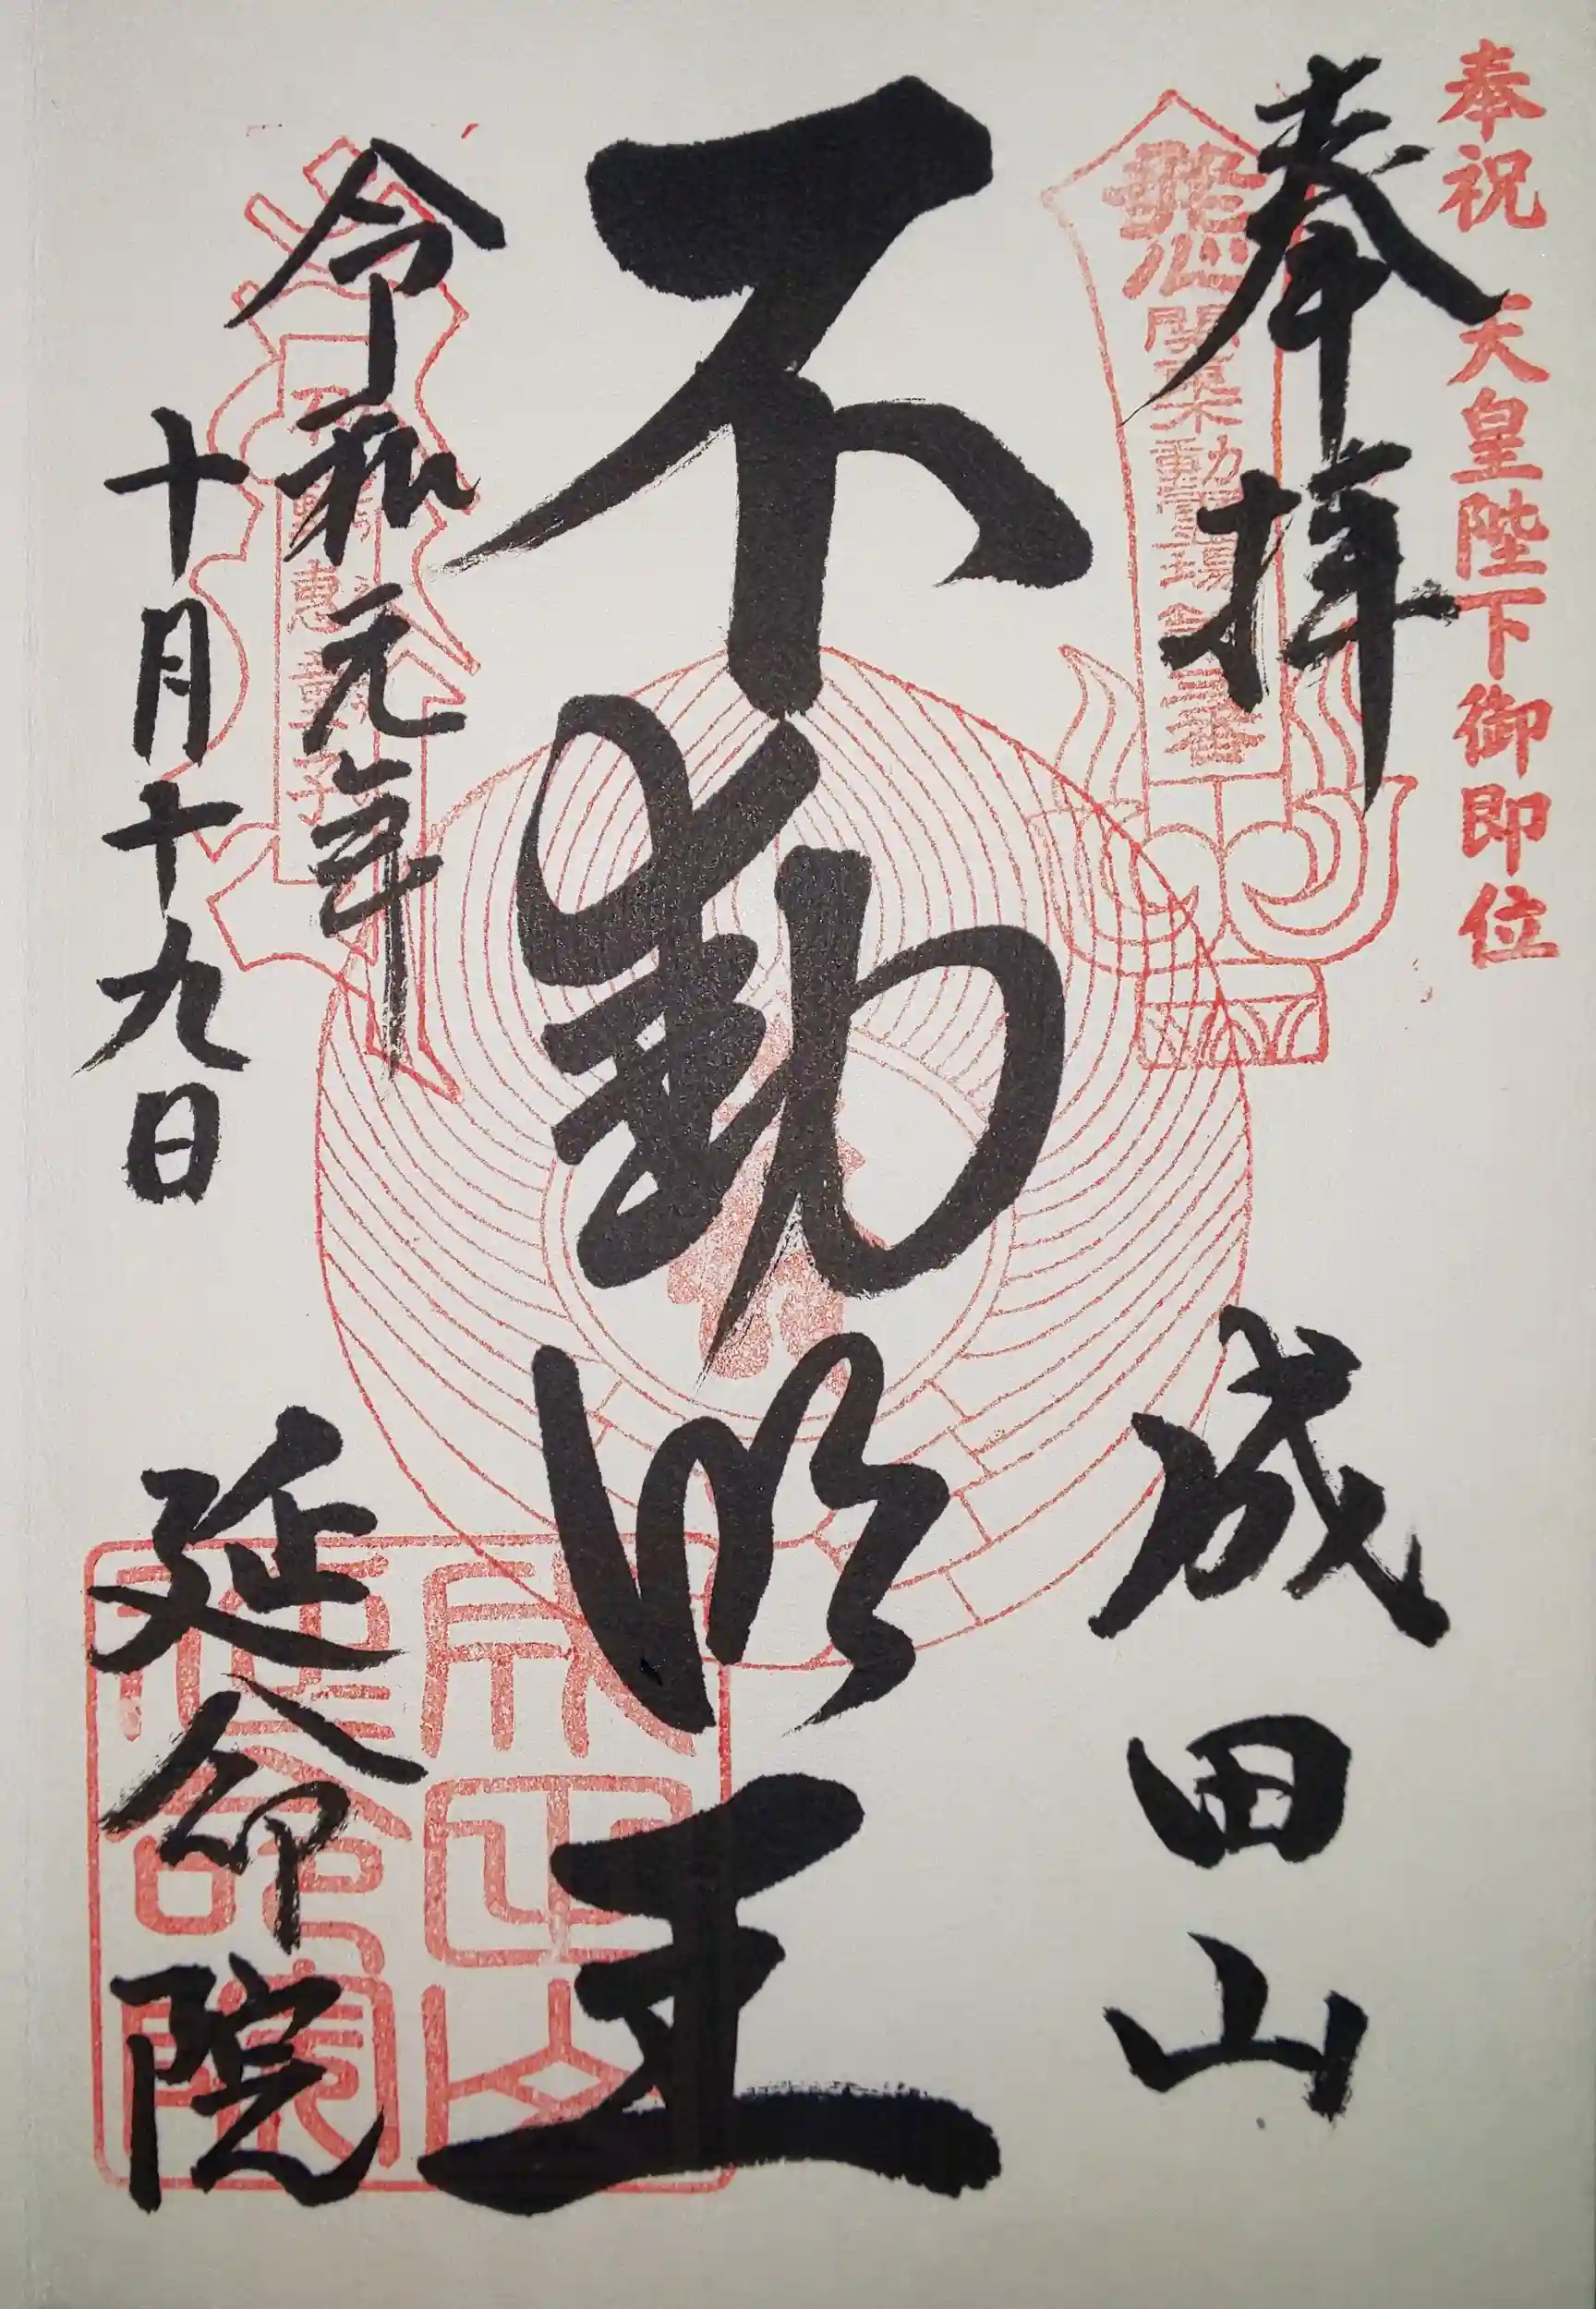 奉祝 天皇陛下御即位
奉拝 成田山
不動明王
令和元年
十月十九日
延命院
成田山
延命院